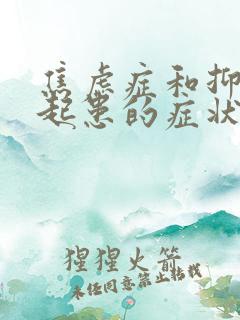 焦虑症和抑
起患的症状
猩猩火箭
未经同意禁止转载